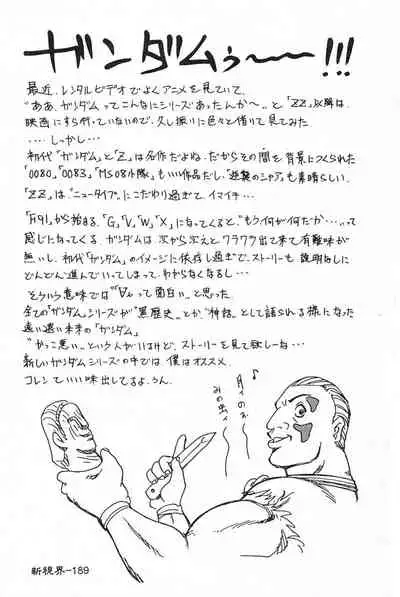 ガンダムぅ〜〜!!!
最近、レンタルビデオでよくアニメを見ていて、
"ああ、ガンダムってこんなにシリーズあったんか〜"と「ZZ」以降は、
映画にすら行っていないので、久し振りに色々と借りて見てみた
....しっかし...
初代"ガンダム"と「Z」は名作だよね、だからその間を背景につくられた
「0080」「0083」「MS08小隊」もいい作品だし、"逆襲のシャア"も素晴らしい、
「ZZ」は"ニュータイプ"にこだわり過ぎて、イマイチ...
「F91」から始まる、「G」「V」「W」「X」になってくると、"もう何が何だか・・・"って
感じになってくる、ガンダムは次から次えとワラワラ出て来て有難味が
無いし、初代「ガンダム」のイメージに依存し過ぎて、ストーリーも説明なしに
どんどん進んでいってしまって、わからなくなるし...
そういう意味では"∀"って面白い、と思った
全ての「ガンダム」シリーズが"黒歴史"とか"神話"として語られる様になった
遠い遠い未来の「ガンダム」
"かっこ悪い"という人がいるけど、ストーリーを見て欲しーな...
新しいガンダムシリーズの中では、僕はオススメ、
コレンていい味出してるよ、うん、
♪
月の
みの虫
新視界-189